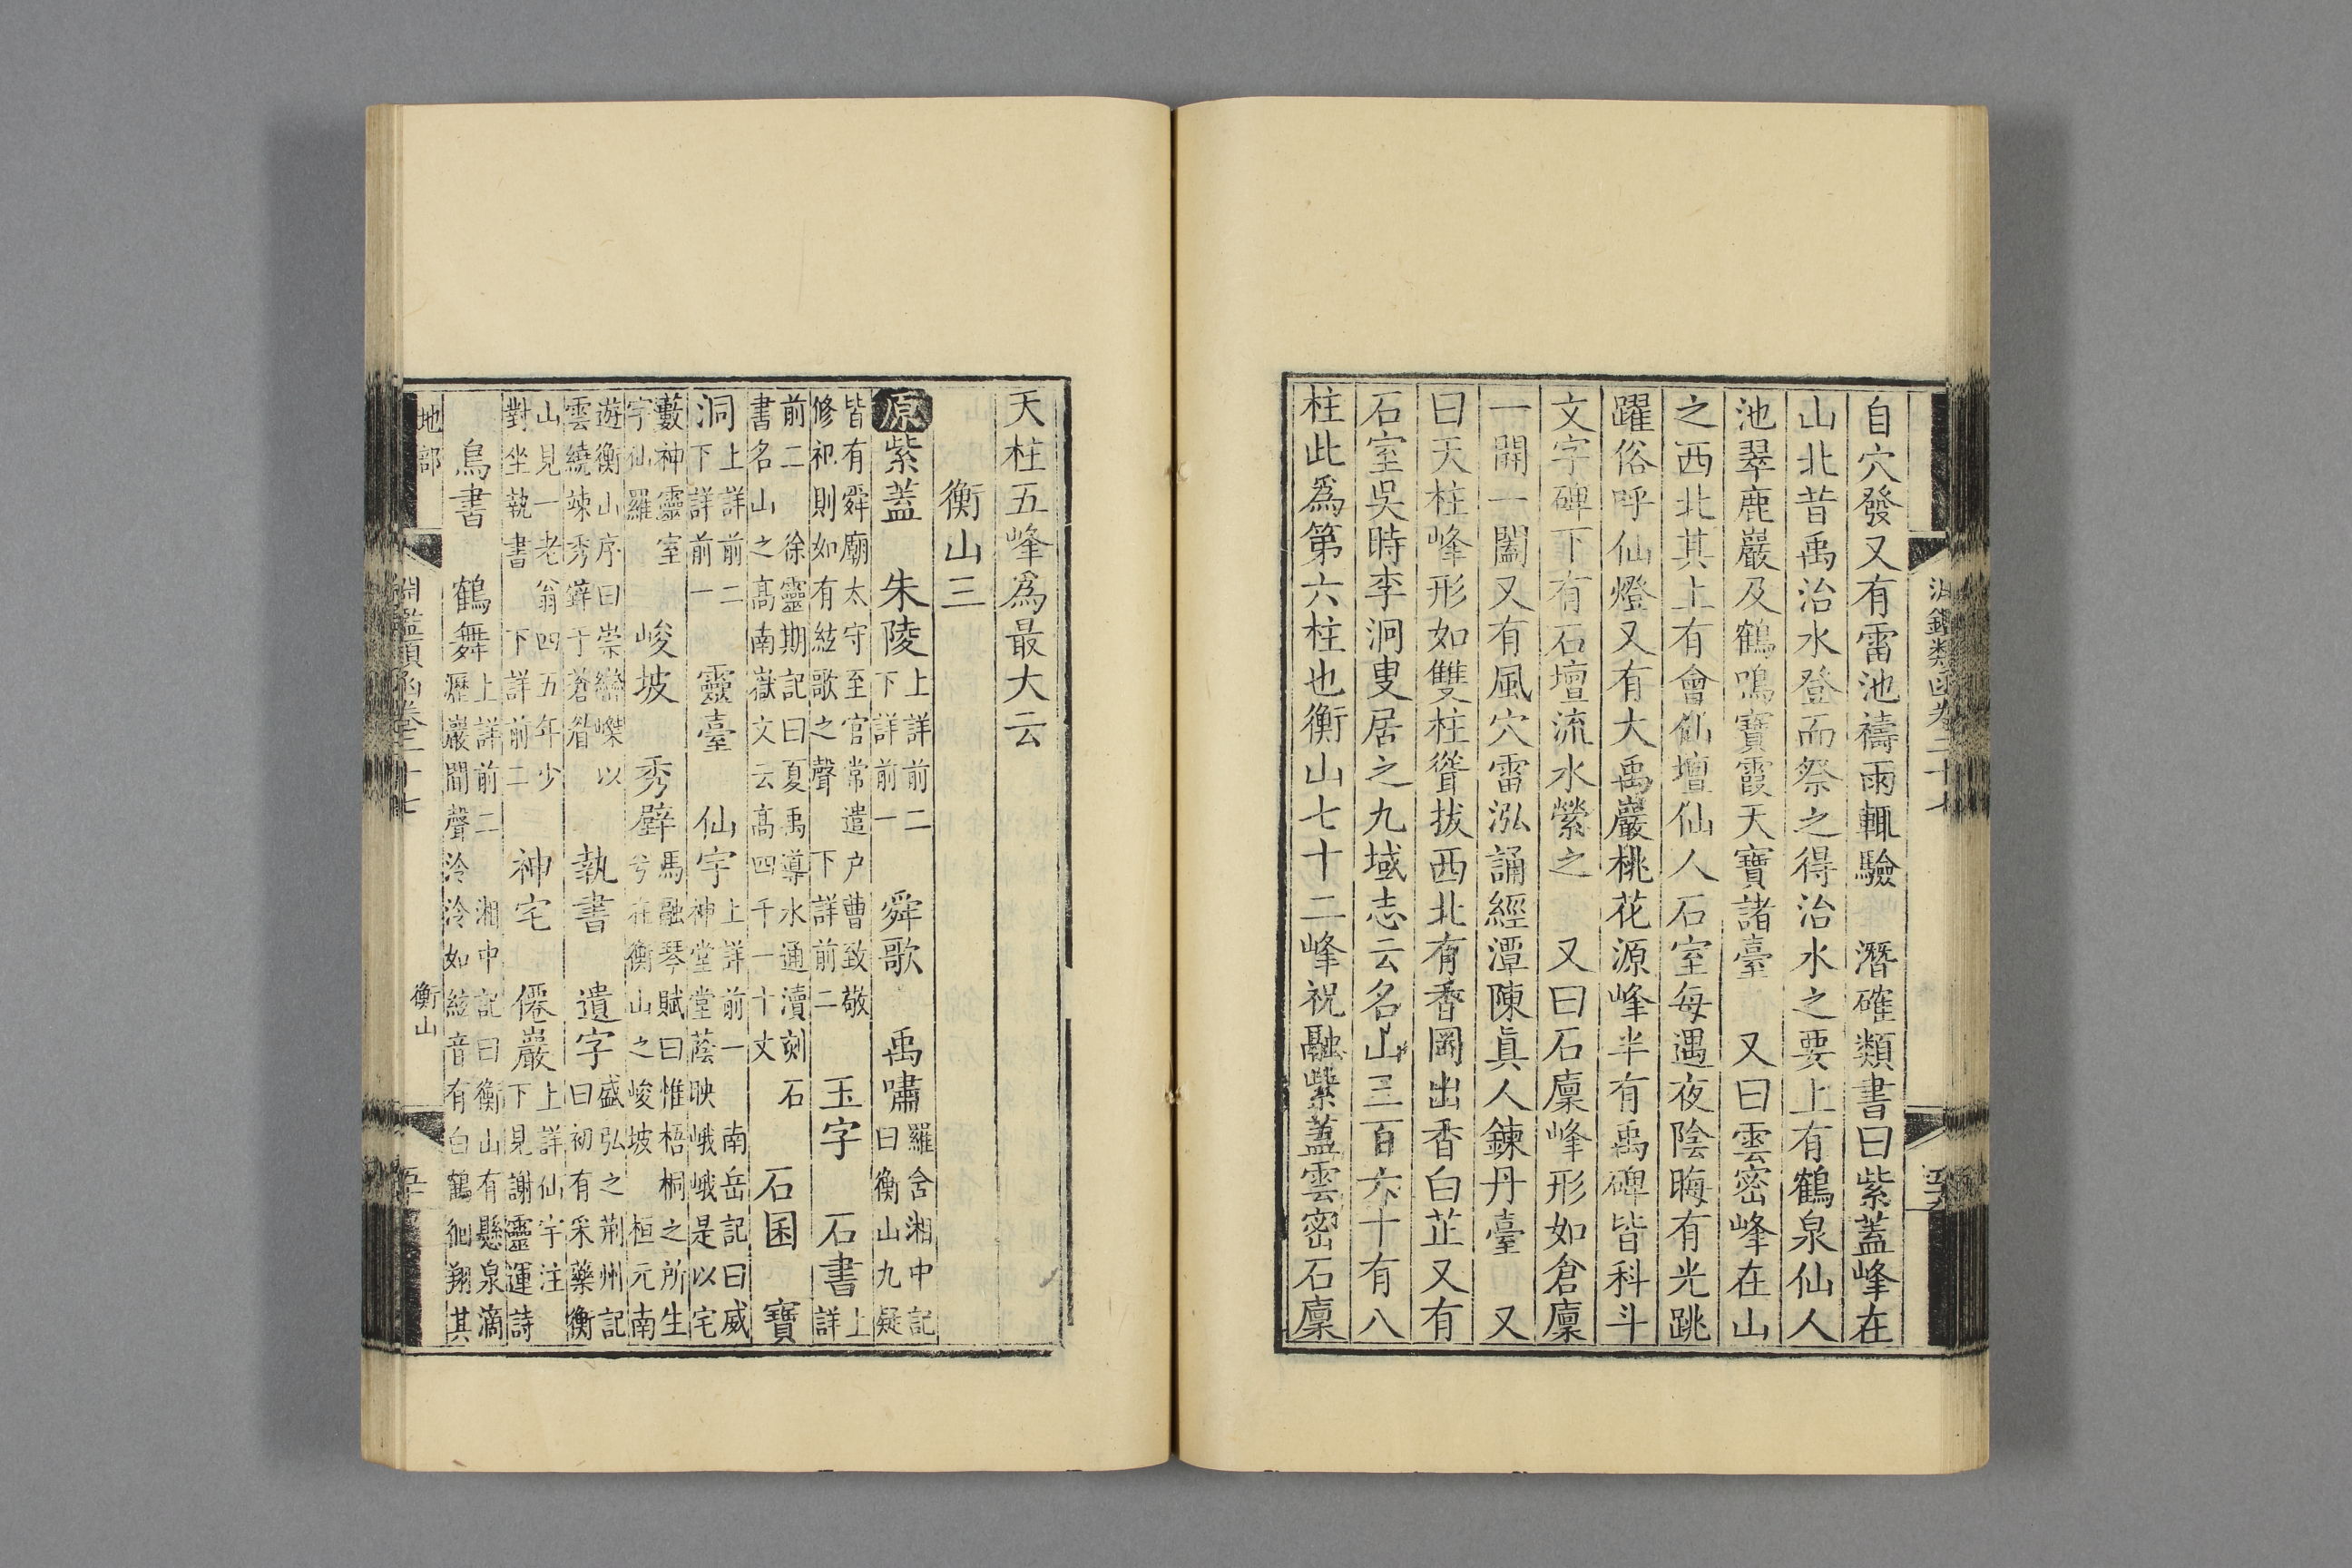 淵鑑類函卷二十七
自穴發又有雷池禱雨輒驗　潛確類書曰紫蓋峰在
山北昔禹治水登而祭之得治水之要上有鶴泉仙人
池翠鹿巖及鶴鳴寶霞天寶諸臺　又曰雲密峰在山
之西北其上有會仙壇仙人石室每遇夜陰晦有光跳
躍俗呼仙燈又有大禹巖桃花源峰半有禹碑皆科斗
文字碑下有石壇流水縈之　又曰石廩峰形如倉廩
一開一闔又有風穴雷泓誦經潭陳眞人鍊丹臺　又
曰天柱峰形如雙柱聳拔西北有香岡出香白芷又有
石室吳時李泂叟居之九域志云名山三百六十有八
柱此爲第六柱也衡山七十二峰祝融紫蓋雲密石廩
天柱五峰爲最大云
衡山三
原紫蓋　朱陵上詳前二下詳前一　舜歌　禹嘯羅含湘中記曰衡山九疑
皆有舜廟太守至官常遣户曹致敬修祀則如有絃歌之聲　下詳前二　玉字　石書上詳
前二　徐靈期記曰夏禹導水通瀆刻石書名山之髙南嶽文云髙四千一十丈　石囷　寶
洞上詳前二下詳前一　靈臺　仙宇上詳前一　南岳記曰威神堂堂蔭映峨峨是以宅
藪神靈室宇仙羅　峻坡　秀壁馬融琴賦曰惟梧桐之所生兮在衡山之峻坡　桓元南
遊衡山序曰崇巒嶫以雲繞竦秀薜于蒼　執書　遺字盛弘之荆州記曰初有采藥衡
山見一老翁四五年少對坐執書　下詳前二　神宅　僊巖上詳仙宇注下見謝靈運詩
鳥書　鶴舞上詳前二　湘中記曰衡山有懸泉滴瀝巖間聲泠泠如絃音有白鶴徊翔其
地部　淵鑑類函卷二十七　衡山